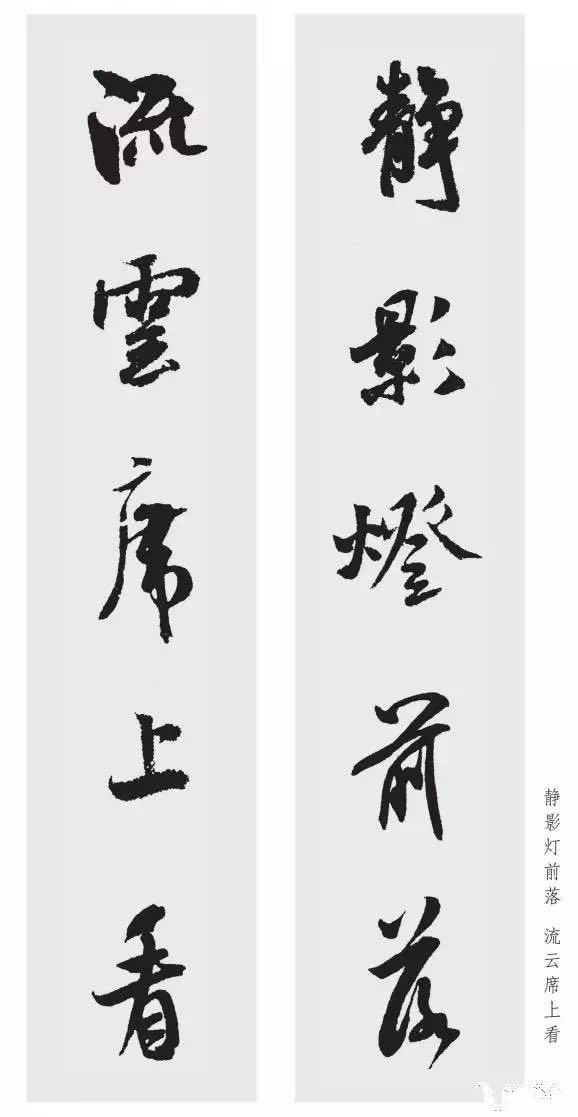 靜影燈前落
流雲席上看
静影灯前落 流云席上看